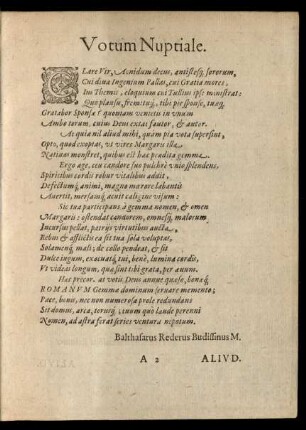 Votum Nuptiale.
CLare Vir, Aonidum decus, antistesq; sororum,
Cui diva Ingenium Pallas, cui Gratia mores.
Ius Themis, eloquium cui Tullius ipse ministrat:
Quo plausu, fremituq;, tibi pie sponse, tuæq;
Grator Sponsæ (quoniam venistis in vnum
Ambo torum, cuius Deus exstat fautor, & autor.
At quia nil aliud mihi, quàm pia vota supersunt,
Opto, quod exoptas, vt vires Margaris illa
Nativas monstret, quibus est hæc prædita gemma
Ergo age, ceu candore suo pulchrè vniosplendens,
Spiritibus cordis robur vitalibus addit,
Defectumq; animi, magno mærore labantis
Avertit, mersamq; acuit caligine visum:
Sic tua participans à gemma nomen, & omen
Margaris: ostendat candorem, omnesq; malorum
Incursus pellat, patriis virtutibus aucta,
Rebus & afflictis ea sit tua sola voluptas,
Solamenq; mali; de collo pendeat, & sit
Dulce ingum, exacuatq; tui, benè, lumina cordis,
Vt videas longum, quæ sint tibi grata, per ævum.
Hæc precor. at votis Deus annue quæso, bonaq;
ROMANVM Gemma dominum seruare memento;
Pace, bonis, nec non numerosa prole redundans
Sit domus, arca, torusq; ; tuum quo laude perenni
Numen, ad astra ferat series ventura nepotum.
Balthasarus Rederus Budissinus M.
A 2
ALIVD.